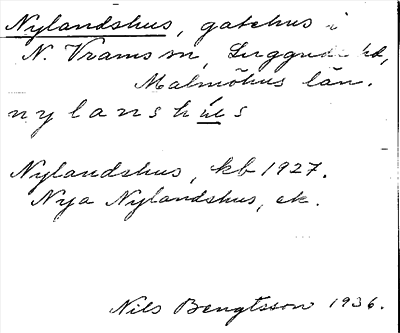 Nylandshus, gatehus i
N. Vrams sn, Luggude hd,
Malmöhus län.
nylanshús
Nylandshus, kb 1927.
Nya Nylandshus, ek.
Nils Bengtsson 1936.